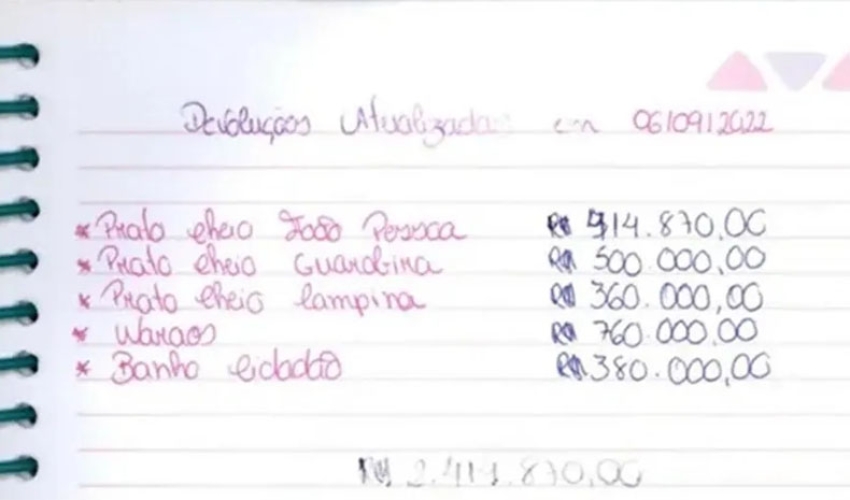 Devoluções Atualizadas em 06/09/2022
* Prato cheio João Pessoa R$ 414.870,00
* Prato cheio Guarabira R$ 500.000,00
* Prato cheio Campina R$ 360.000,00
* Waraos R$ 760.000,00
* Banho cidadão R$ 380.000,00
R$ 2.414.870,00